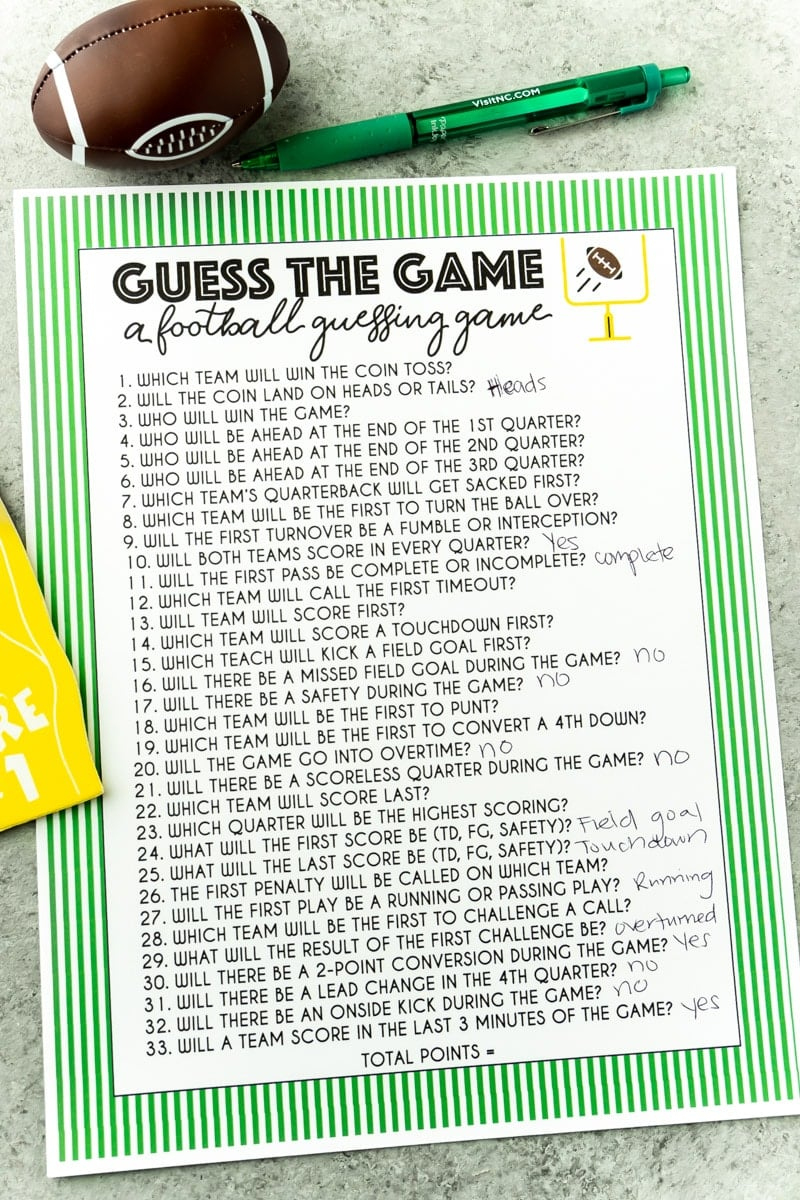 VISITNC.COM
GUESS THE GAME
a football guessing game
1. WHICH TEAM WILL WIN THE COIN TOSS?
2. WILL THE COIN LAND ON HEADS OR TAILS? Heads
3. WHO WILL WIN THE GAME?
4. WHO WILL BE AHEAD AT THE END OF THE 1ST QUARTER?
5. WHO WILL BE AHEAD AT THE END OF THE 2ND QUARTER?
6. WHO WILL BE AHEAD AT THE END OF THE 3RD QUARTER?
7. WHICH TEAM'S QUARTERBACK WILL GET SACKED FIRST?
8. WHICH TEAM WILL BE THE FIRST TO TURN THE BALL OVER?
9. WILL THE FIRST TURNOVER BE A FUMBLE OR INTERCEPTION?
10. WILL BOTH TEAMS SCORE IN EVERY QUARTER? Yes
11. WILL THE FIRST PASS BE COMPLETE OR INCOMPLETE? complete
12. WHICH TEAM WILL CALL THE FIRST TIMEOUT?
13. WILL TEAM WILL SCORE FIRST?
14. WHICH TEAM WILL SCORE A TOUCHDOWN FIRST?
15. WHICH TEACH WILL KICK A FIELD GOAL FIRST?
16. WILL THERE BE A MISSED FIELD GOAL DURING THE GAME? no
17. WILL THERE BE A SAFETY DURING THE GAME? no
18. WHICH TEAM WILL BE THE FIRST TO PUNT?
19. WHICH TEAM WILL BE THE FIRST TO CONVERT A 4TH DOWN?
20. WILL THE GAME GO INTO OVERTIME? no
21. WILL THERE BE A SCORELESS QUARTER DURING THE GAME? no
22. WHICH TEAM WILL SCORE LAST?
23. WHICH QUARTER WILL BE THE HIGHEST SCORING?
24. WHAT WILL THE FIRST SCORE BE (TD, FG, SAFETY)? Field goal
25. WHAT WILL THE LAST SCORE BE (TD, FG, SAFETY)? Touchdown
26. THE FIRST PENALTY WILL BE CALLED ON WHICH TEAM?
27. WILL THE FIRST PLAY BE A RUNNING OR PASSING PLAY? Running
28. WHICH TEAM WILL BE THE FIRST TO CHALLENGE A CALL?
29. WHAT WILL THE RESULT OF THE FIRST CHALLENGE BE? overturned
30. WILL THERE BE A 2-POINT CONVERSION DURING THE GAME? Yes
31. WILL THERE BE A LEAD CHANGE IN THE 4TH QUARTER? no
32. WILL THERE BE AN ONSIDE KICK DURING THE GAME? no
33. WILL A TEAM SCORE IN THE LAST 3 MINUTES OF THE GAME? yes
TOTAL POINTS =